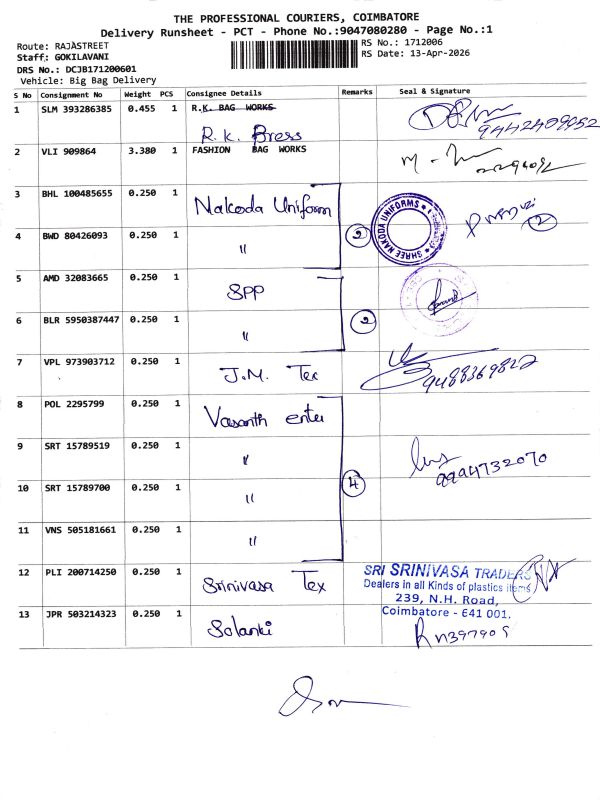 THE PROFESSIONAL COURIERS, COIMBATORE
Delivery Runsheet - PCT - Phone No.:9047080280 - Page No.:1
Route: RAJASTREET
RS No.: 1712006
Staff: GOKILAVANI
RS Date: 13-Apr-2026
DRS No.: DCJB171200601
Vehicle: Big Bag Delivery
S No Consignment No Weight PCS Consignee Details Remarks Seal & Signature
1 SLM 393286385 0.455 1 R.K. BAG WORKS
R.K. Bress
9442409952
2 VLI 909864 3.380 1 FASHION BAG WORKS
3 BHL 100485655 0.250 1 Nakoda Uniform
SHREE NAKODA UNIFORMS
2
2
4 BWD 80426093 0.250 1 "
5 AMD 32083665 0.250 1 SPP
2
6 BLR 5950387447 0.250 1 "
7 VPL 973903712 0.250 1 J.M. Tex
9488369822
8 POL 2295799 0.250 1 Vasanth enter
9 SRT 15789519 0.250 1 "
9994732070
4
10 SRT 15789700 0.250 1 "
11 VNS 505181661 0.250 1 "
12 PLI 200714250 0.250 1 Srinivasa Tex
SRI SRINIVASA TRADERS
Dealers in all Kinds of plastics items
239, N.H. Road,
Coimbatore - 641 001.
13 JPR 503214323 0.250 1 Solanki